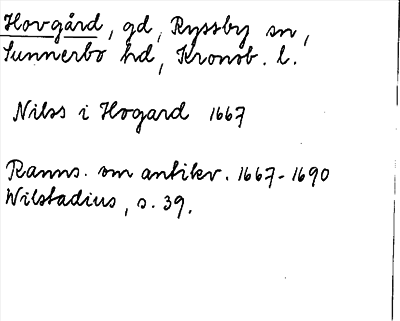 Hovgård, gd, Ryssby sn,
Sunnerbo hd, Kronob. l.
Nilss i Hogard 1667
Ranns. om antikv. 1667-1690
Wilstadius, s. 39.